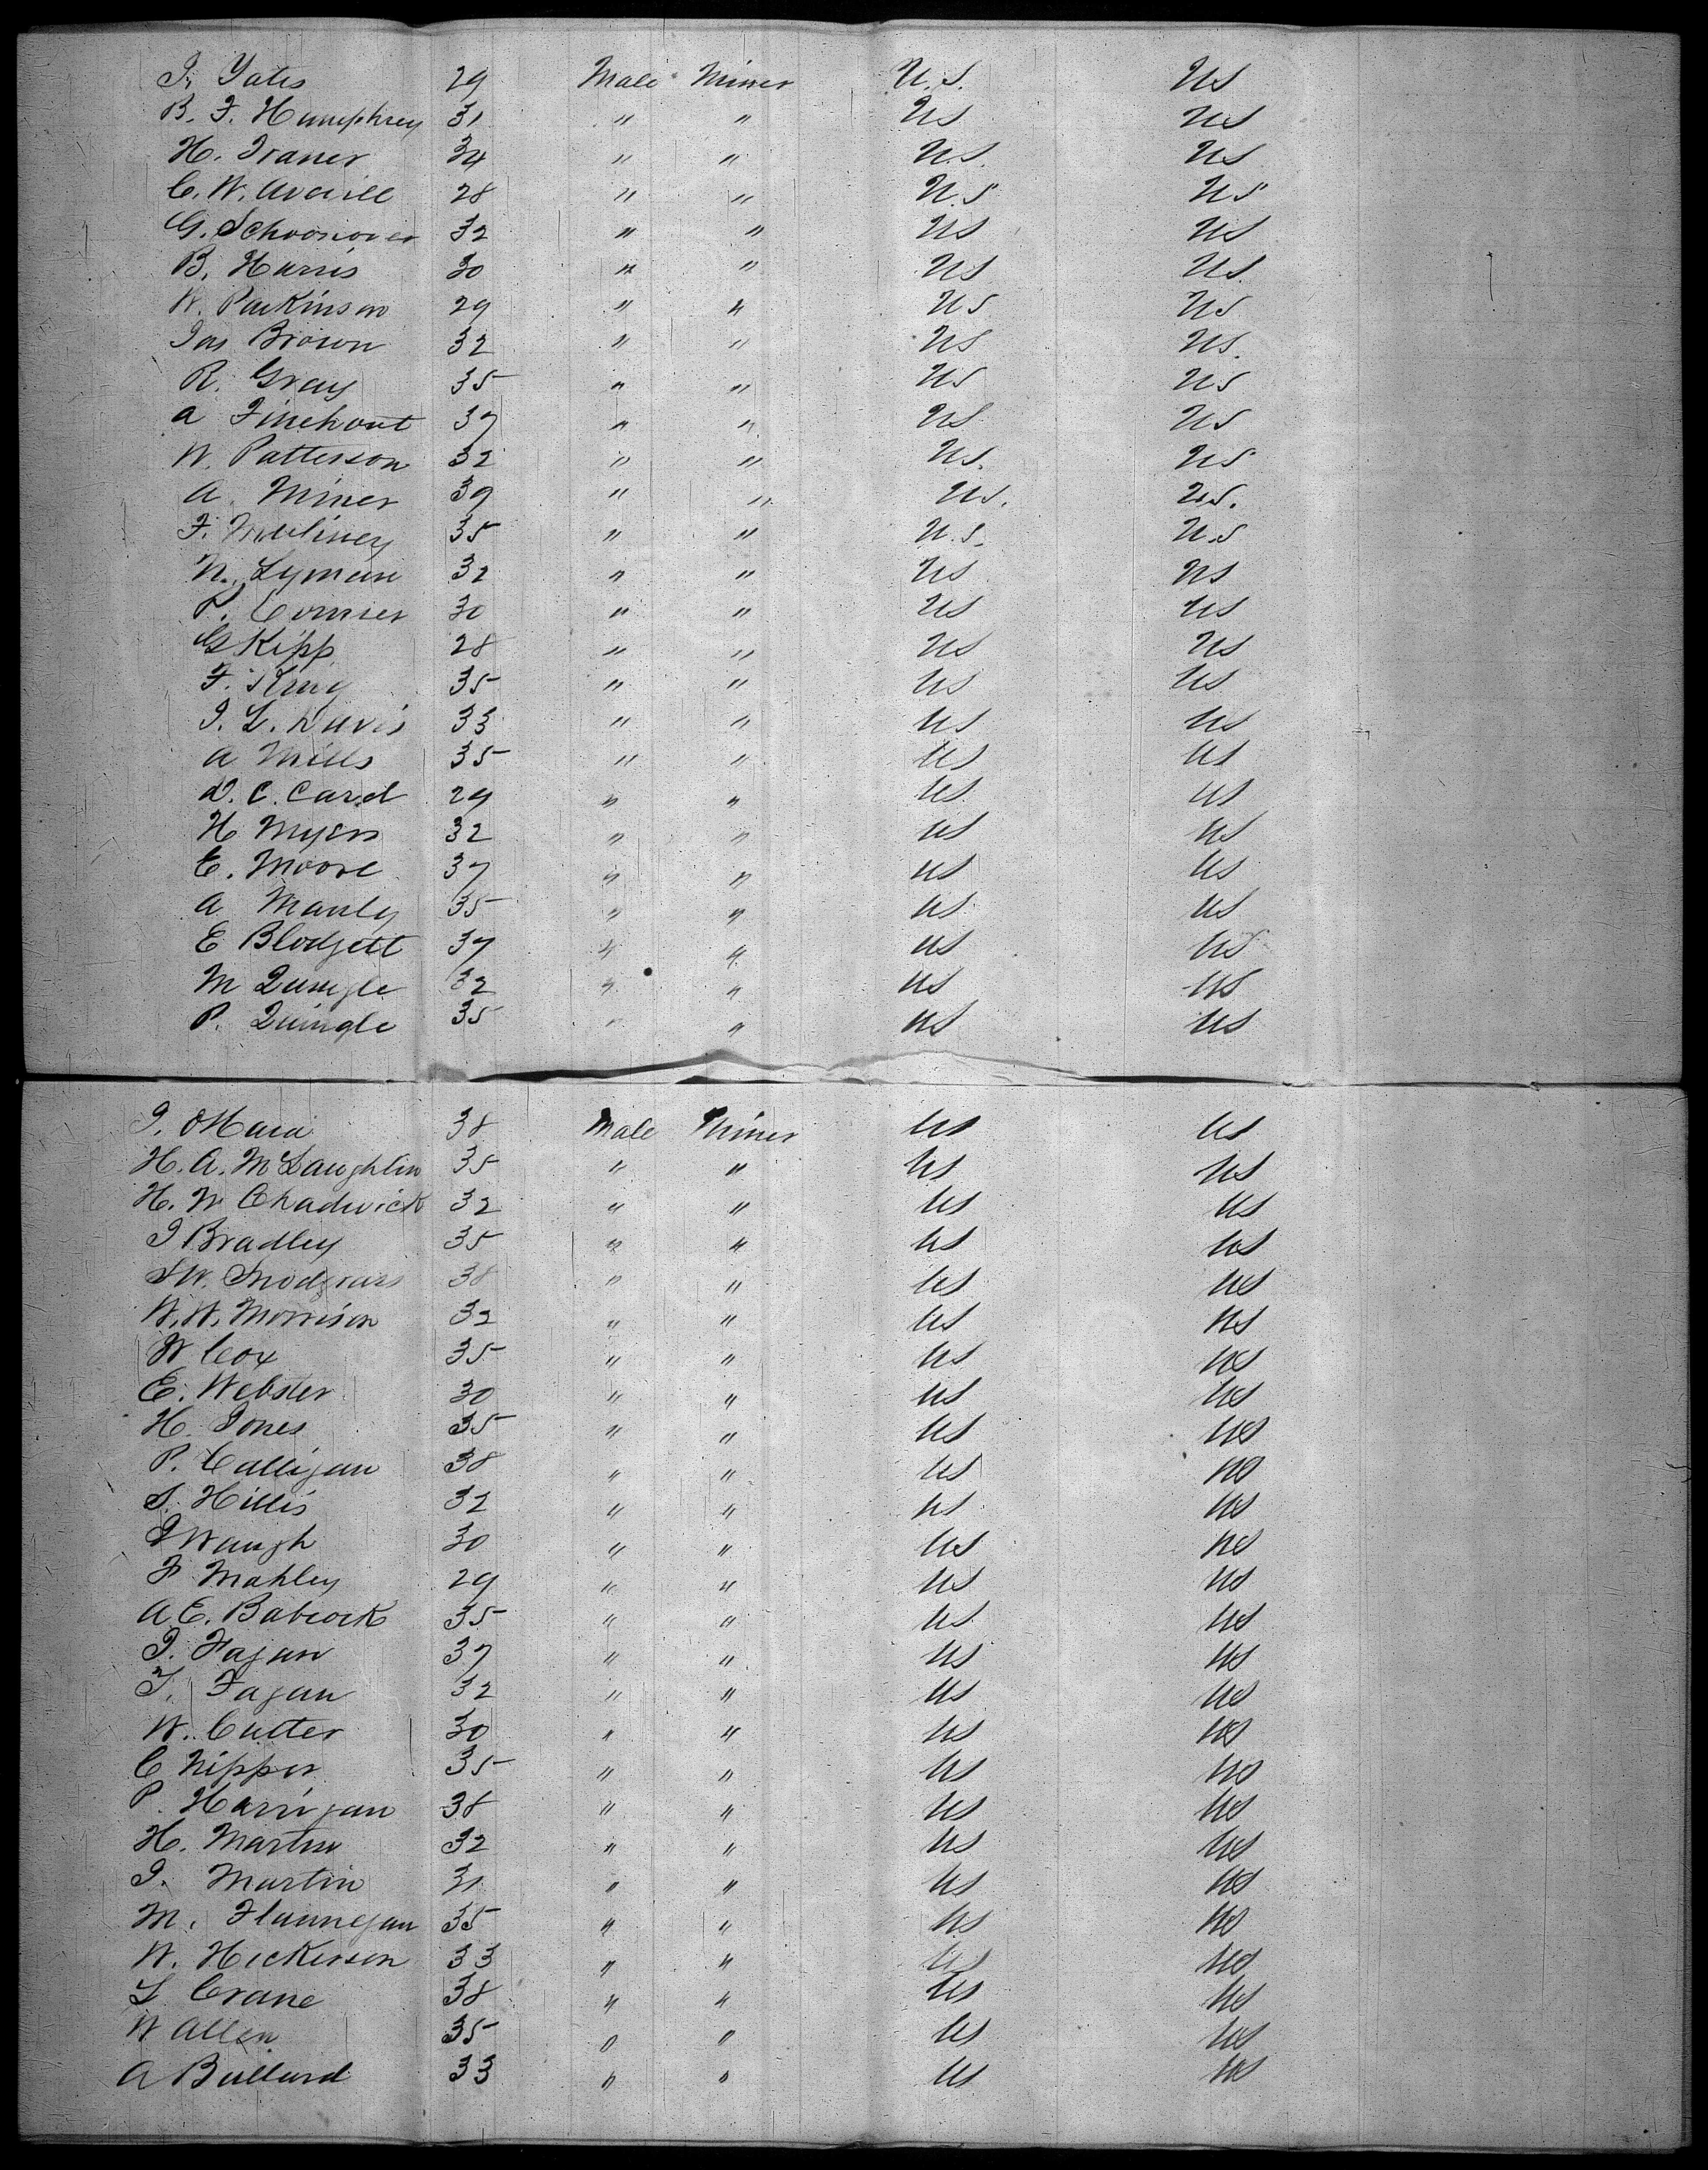 J. Yates 29 Male Miner U.S. US
B. F. Humphrey 31 " " US US
H. Traner 34 " " U.S. US
C. W. Averill 28 " " U.S US
G. Schoonover 32 " " US US
B. Harris 30 " " US US.
W. Parkinson 29 " " US US
Jas Brown 32 " " US US.
R. Gray 35 " " US US
A Finehout 37 " " US US
W. Patterson 32 " " US. US
A. Miner 39 " " US. U.S.
F. 35 " " U.S. U.S
N. Lyman 32 " " US US
P. Conner 30 " " US US
G Kipp 28 " " US US
F. King 35 " " US US
J. L. Davis 33 " " US US
A Mills 35 " " US US
D. C. Card 29 " " US US
H Myers 32 " " US US
E. Moore 37 " " US US
A Manly 35 " " US US
E Blodgett 37 " " US US
M Quingle 32 " " US US
P. Quingle 35 " " US US
J. OMara 38 Male Miner US US
H. A. McLaughlin 35 " " US US
H. W Chadwick 32 " " US US
J Bradley 35 " " US US
S W. Snodgrass 38 " " US US
W. W. Morrison 32 " " US US
W Cox 35 " " US US
E. Webster 30 " " US US
H. Jones 35 " " US US
P. Calligan 38 " " US US
S. Hillis 32 " " US US
J Waugh 30 " " US US
F Mahley 29 " " US US
A. E. Babcock 35 " " US US
J. Fagan 37 " " US US
T. Fagan 32 " " US US
W. Cutter 30 " " US US
C Nipper 35 " " US US
P. Harrigan 38 " " US US
H. Martin 32 " " US US
J. Martin 31 " " US US
M. Flannegan 35 " " US US
W. Hickerson 33 " " US US
L Crane 38 " " US US
W Allen 35 " " US US
A Bullard 33 " " US US